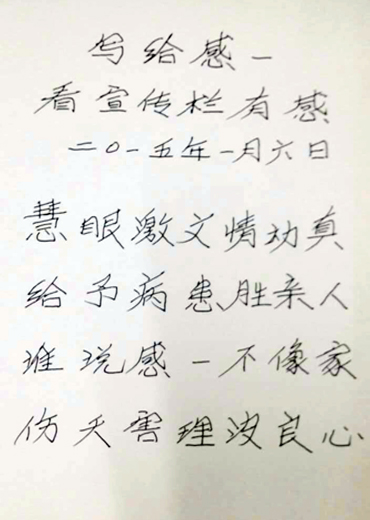 写给感一
看宣传栏有感
二〇一五年一月六日
慧眼激文情切真
给予病患胜亲人
谁说感一不像家
伤天害理没良心